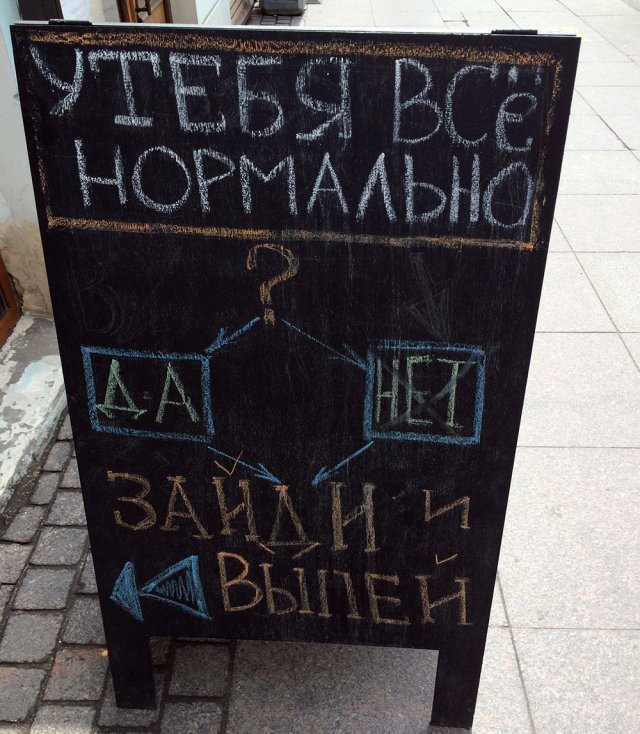 У ТЕБЯ ВСё
НОРМАЛЬНО
?
ДА НЕТ
ЗАЙДИ И
ВЫПЕЙ